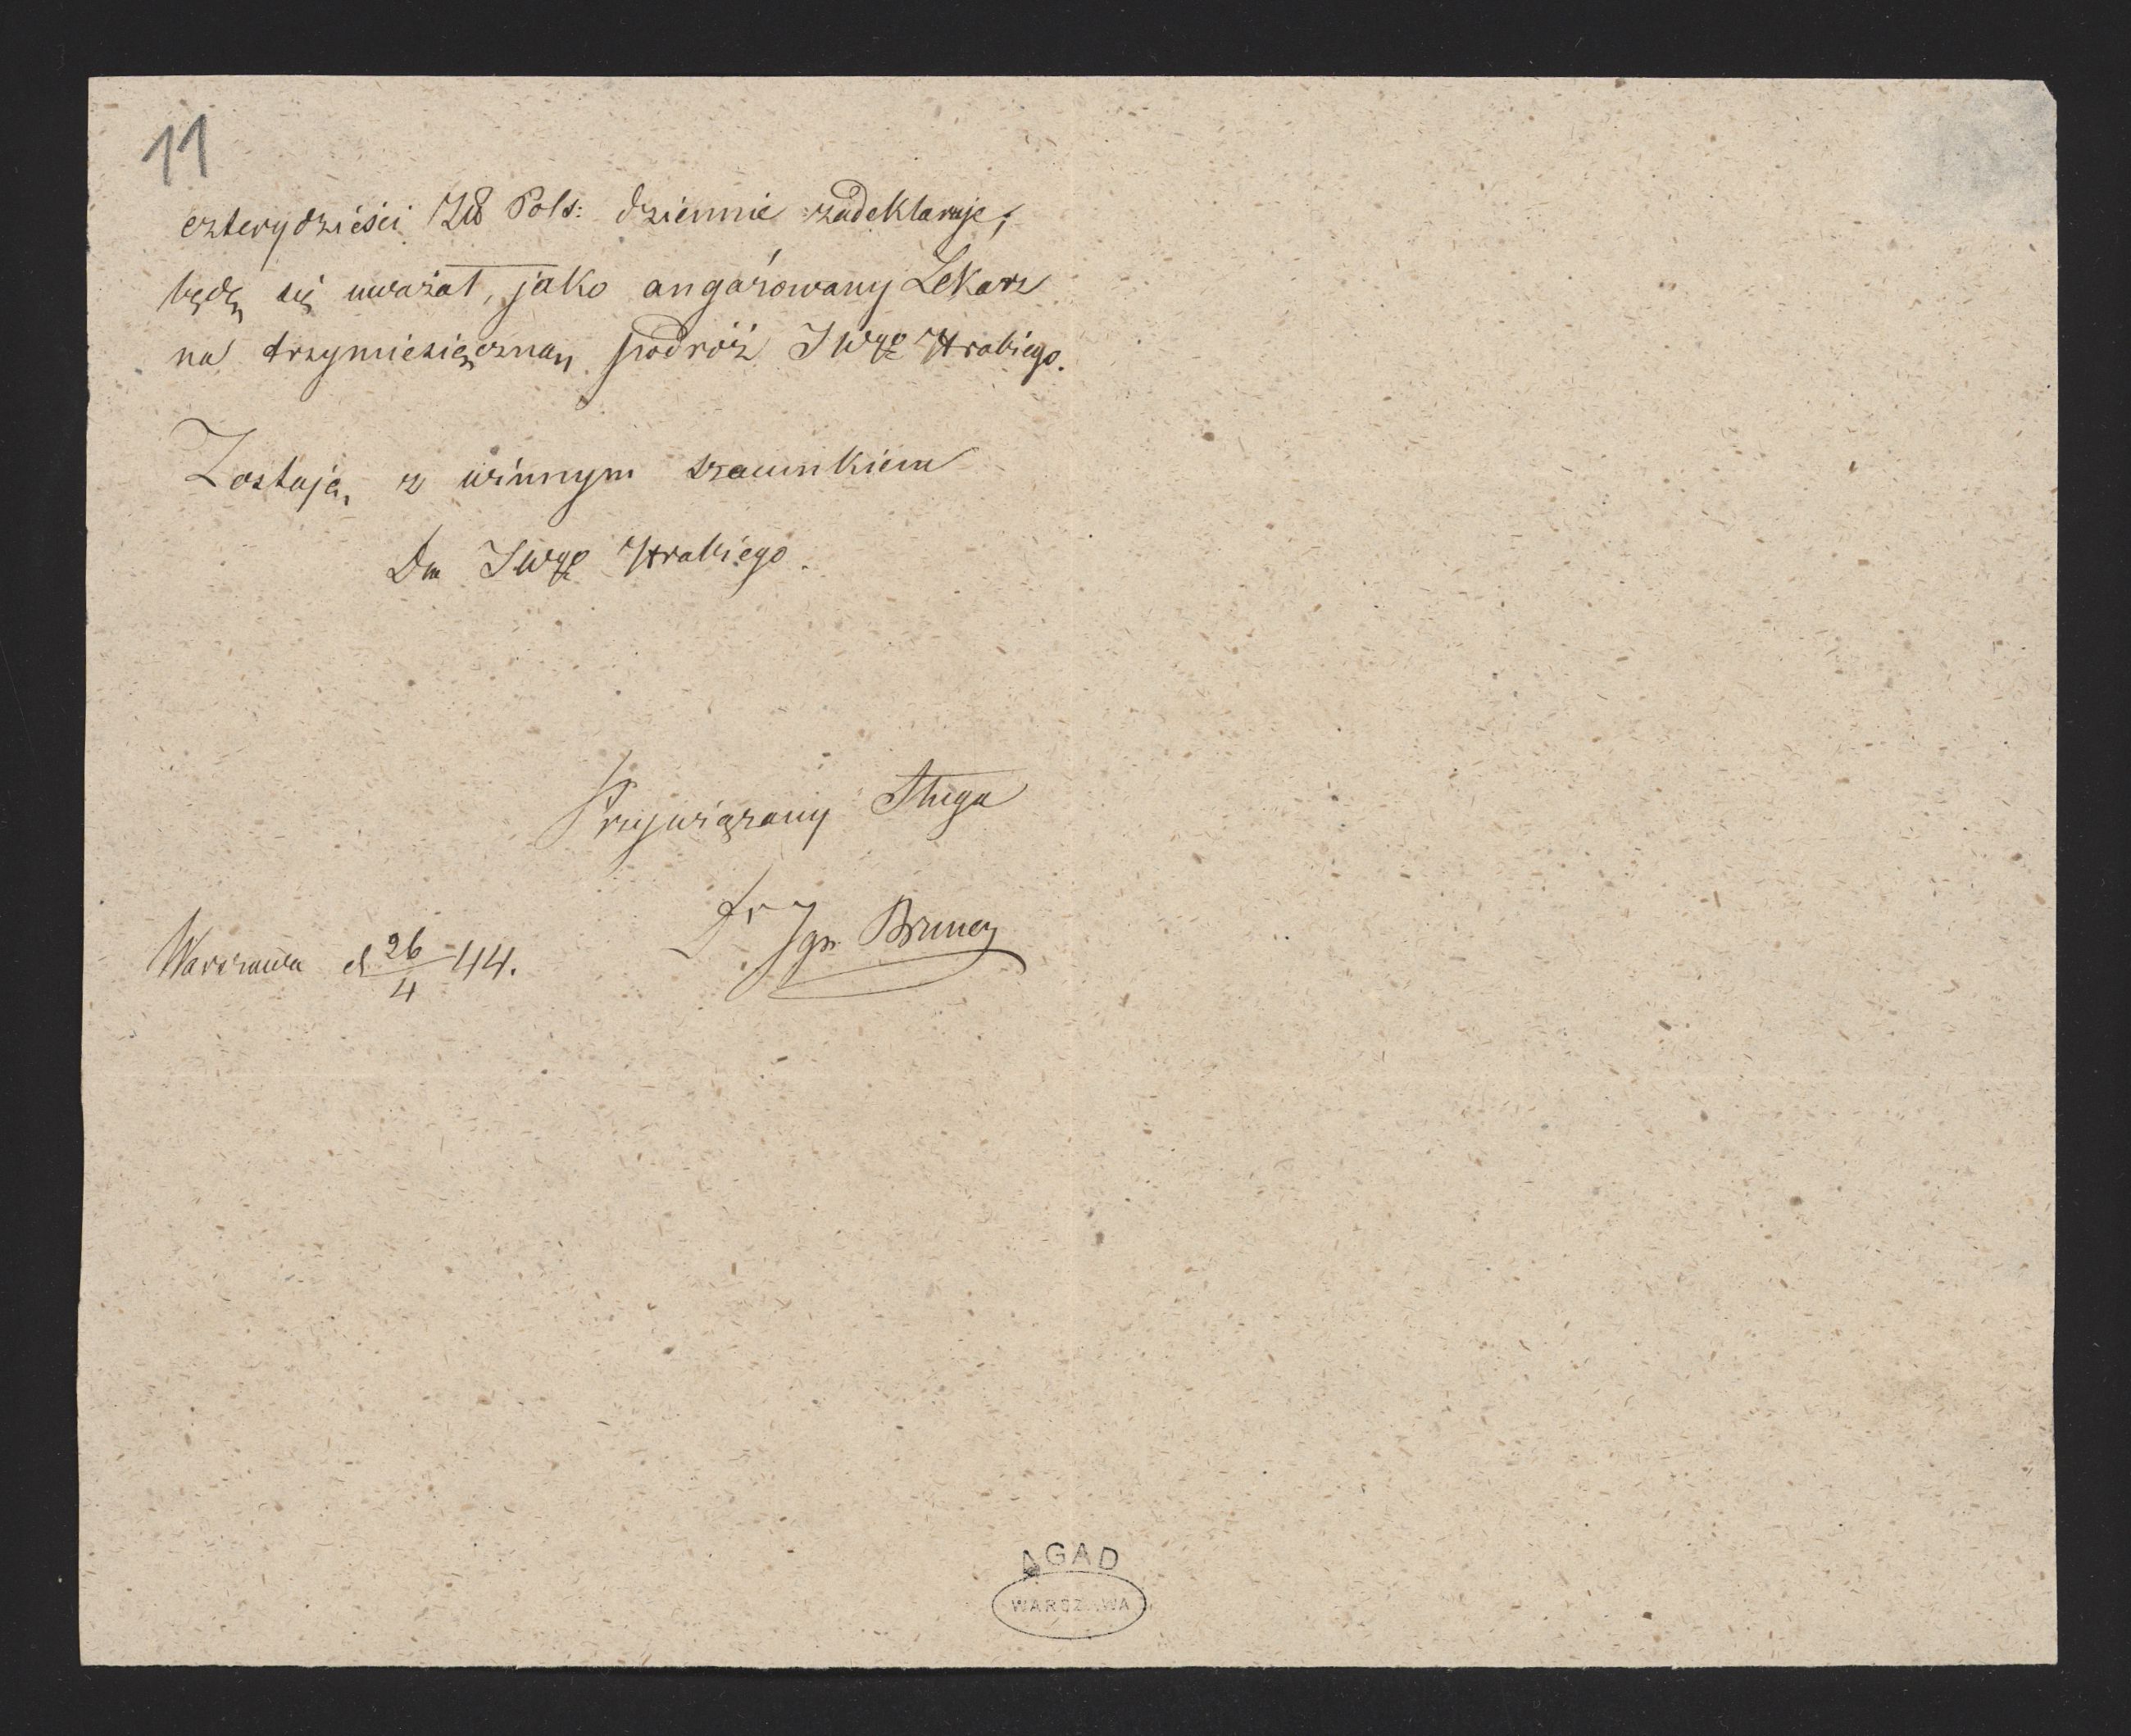 11
czterydzieści Zł Pols: dziennie zadeklaruje;
będę się uważał, jako angażowany Lekarz
na trzymiesięczną podróż JWgo Hrabiego.
Zostaję z winnym szacunkiem
Dla JWgo Hrabiego.
Przywiązany Sługa
Dr Ign
Warszawa d 26/4 44.
AGAD
WARSZAWA